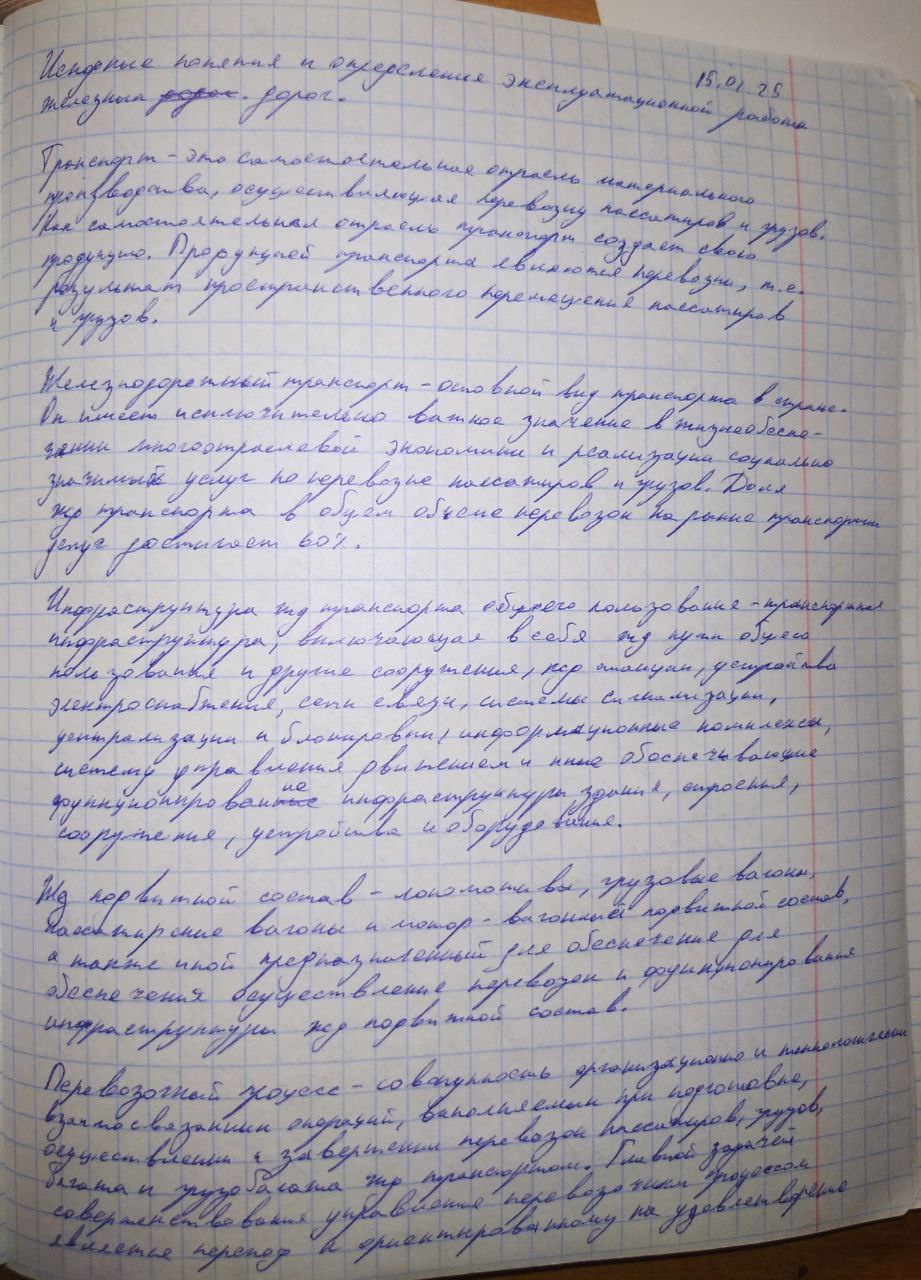 15.01.25
Исходные понятия и определения эксплуатационной работы
железных дорог. дорог.
Транспорт - это самостоятельная отрасль материального
производства, осуществляющая перевозку пассажиров и грузов.
Как самостоятельная отрасль транспорт создает свою
продукцию. Продукцией транспорта являются перевозки, т.е.
результат пространственного перемещения пассажиров
и грузов.
Железнодорожный транспорт - основной вид транспорта в стране.
Он имеет исключительно важное значение в жизнеобеспе-
чении многоотраслевой экономики и реализации социально
значимых услуг по перевозке пассажиров и грузов. Доля
жд транспорта в общем объеме перевозок на рынке транспортных
услуг достигает 60%.
Инфраструктура жд транспорта общего пользования - транспортная
инфраструктура, включающая в себя жд пути общего
пользования и другие сооружения, жд станции, устройства
электроснабжения, сети связи, системы сигнализации,
централизации и блокировки, информационные комплексы,
систему управления движением и иные обеспечивающие
функционирование инфраструктуры здания, строения,
сооружения, устройства и оборудования.
Жд подвижной состав - локомотивы, грузовые вагоны,
пассажирские вагоны и мотор-вагонный подвижной состав,
а также иной предназначенный для обеспечение для
обеспечения осуществление перевозок и функционирования
инфраструктуры жд подвижной состав.
Перевозочный процесс - совокупность организационно и технологически
взаимосвязанных операций, выполняемых при подготовке,
осуществлении и завершении перевозок пассажиров, грузов,
багажа и грузобагажа жд транспортом. Главной задачей
совершенствования управление перевозочным процессом
является переход к ориентированному на удовлетворение